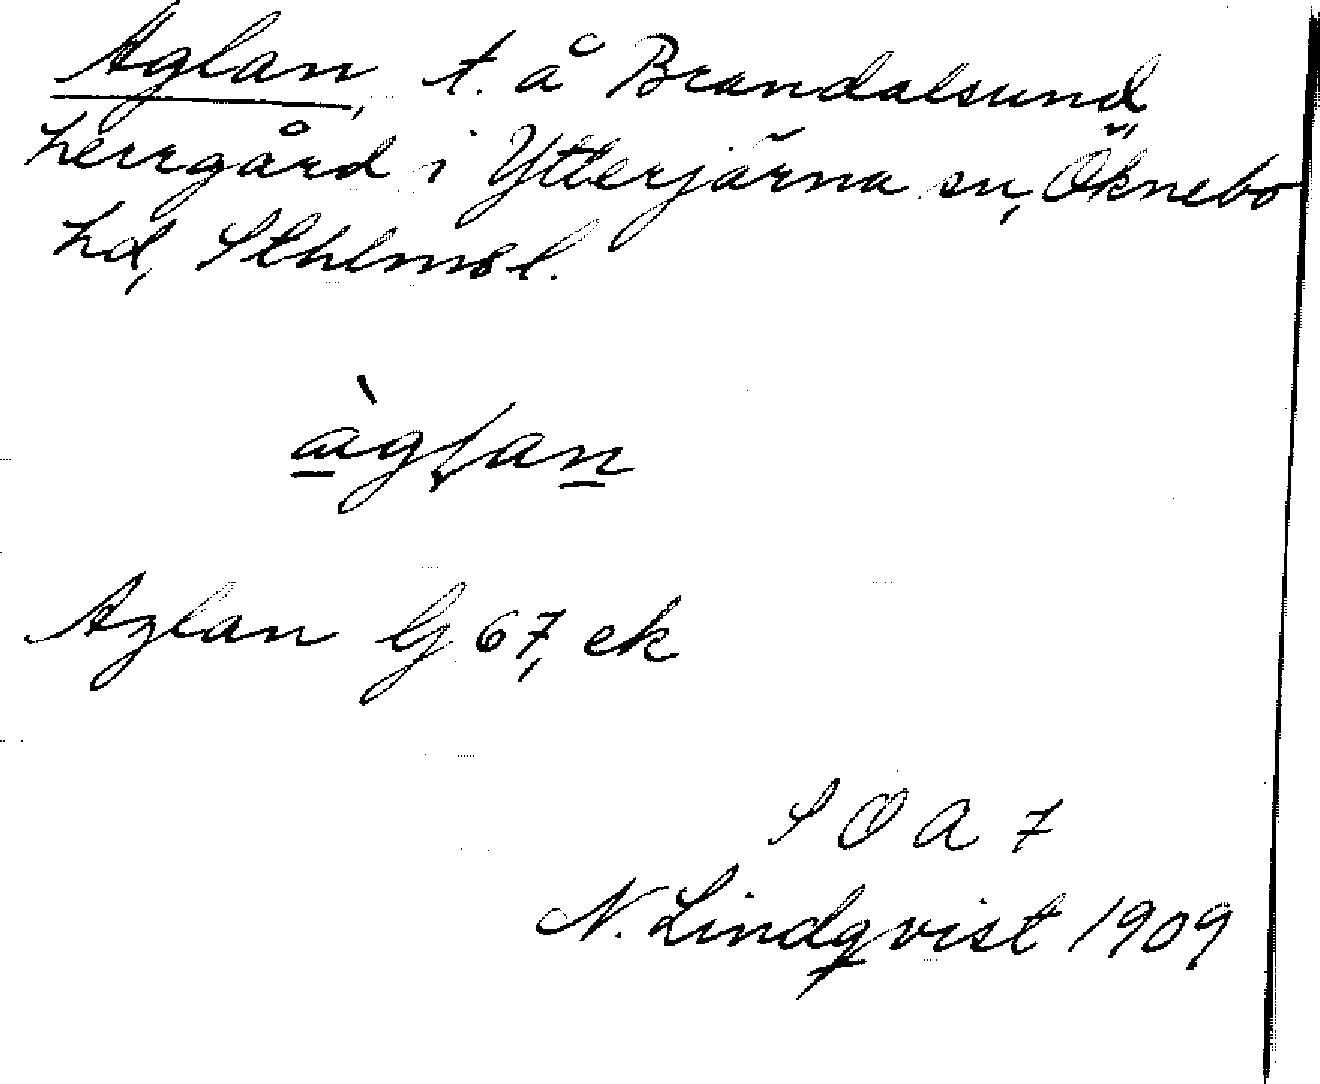 Aglan, t. å Brandalsund
herrgård i Ytterjärna sn, Öknebo
hd, Sthlms l.
àglan
Aglan G 67, ek
S O A 7
N. Lindqvist 1909